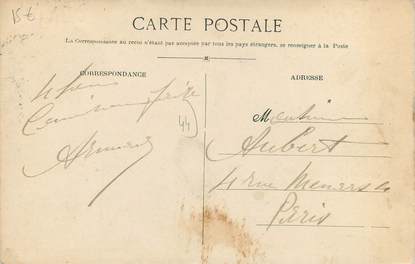 15 €
CARTE POSTALE
La Correspondance au recto n'étant pas acceptée par tous les pays étrangers, se renseigner à la Poste
CORRESPONDANCE
44
ADRESSE
Monsieur
Aubert
4 rue
Paris